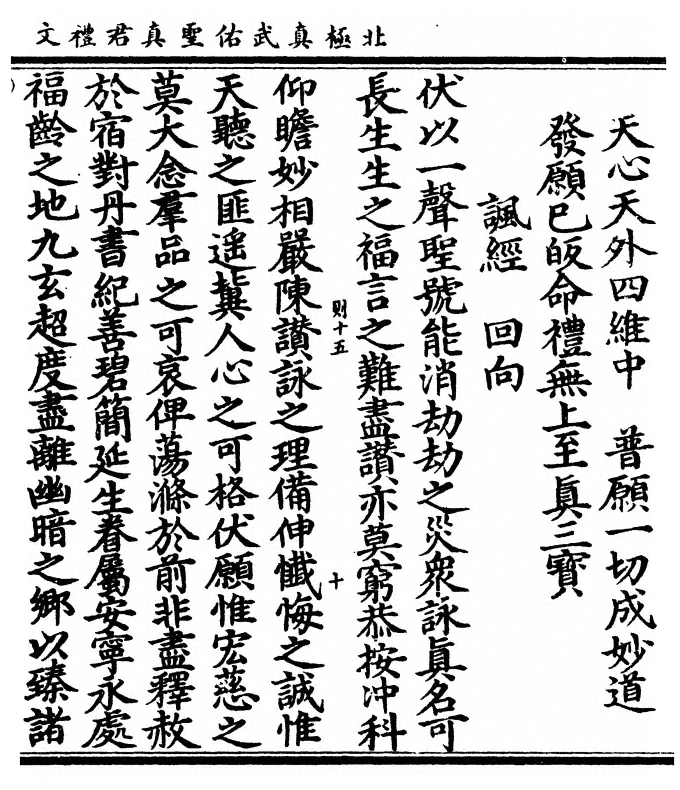 北極真武佑聖真君禮文
天心天外四維中　普願一切成妙道
發願已皈命禮無上至眞三寶
諷經　回向
伏以一聲聖號能消劫劫之災衆詠眞名可
長生生之福言之難盡讃亦莫窮恭按冲科
則十五
十
仰瞻妙相嚴陳讃詠之理備伸懺悔之誠惟
天聽之匪遥冀人心之可格伏願惟宏慈之
莫大念羣品之可哀俾蕩滌於前非盡釋赦
於宿對丹書紀善碧簡延生眷屬安寧永處
福齡之地九玄超度盡離幽暗之鄉以臻諸